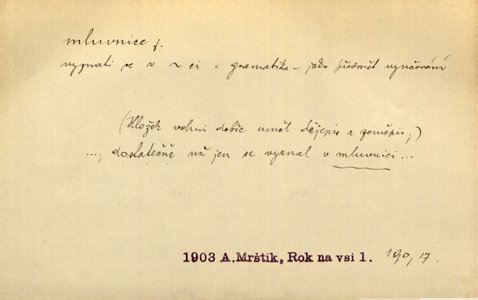 mluvnice f.
vyznati se v ~ ci = gramatika - jako předmět vyučování
(Kložek velmi dobře uměl dějepis a zeměpis;)
...; dostatečně už jen se vyznal v mluvnici ...
1903 A. Mrštík, Rok na vsi 1. 190, 17.